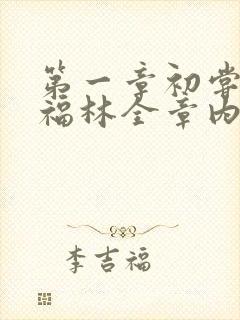 第一章初尝
福林全章内
李吉福